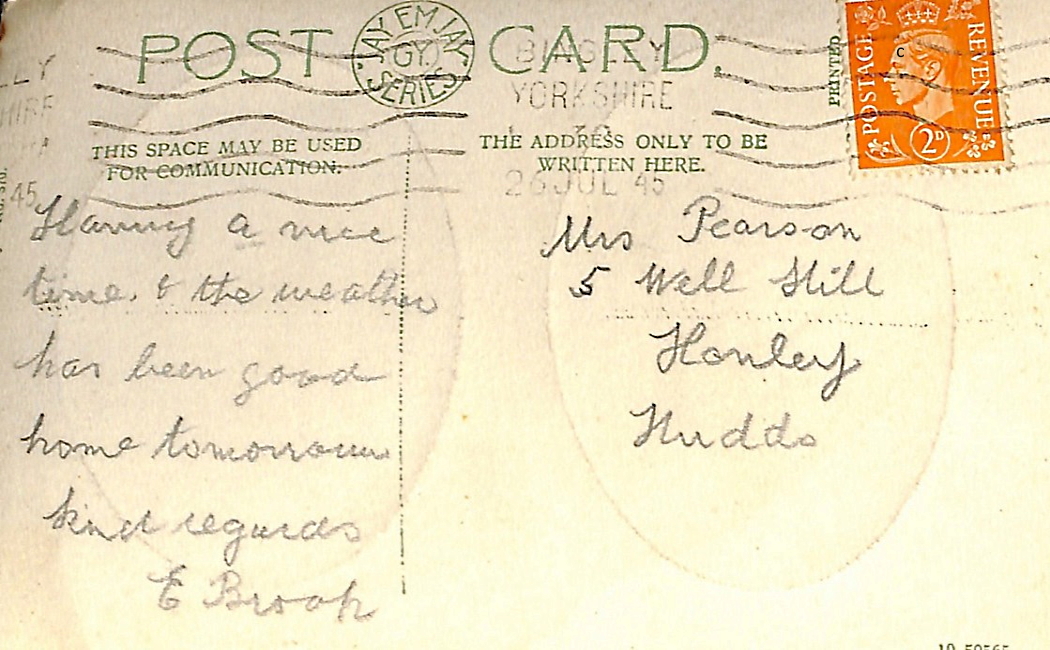 POST CARD.
JAY EM JAY
"GY."
SERIES
BINGLEY
YORKSHIRE
26 JUL 45
PRINTED
POSTAGE
REVENUE
2D
LY
45
THIS SPACE MAY BE USED
FOR COMMUNICATION.
THE ADDRESS ONLY TO BE
WRITTEN HERE.
Having a nice
time. & the weather
has been good
home tomorrow
kind regards
E Brook
Mrs Pearson
5 Well Hill
Honley
Hudds